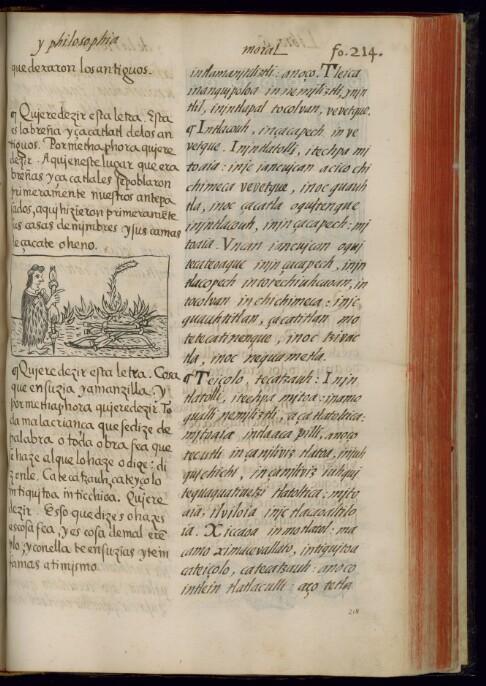 y philosophia
moral fo. 214.
que dexaron los antiguos.
¶ Quiere dezir esta letra. Esta
es la breña y çacatlatl de los an
tiguos. Por methaphora quiere
dezir. Aqui en este lugar que era
breñas y ça catlales se poblaron
primeramente nuestros antepa
sados, aqui hizieron primeramēte
las casas de mimbres y sus camas
de çacate o heno.
¶ Quiere dezir esta letra. Cosa
que ensuzia y amanzilla: y
por methaphora quiere dezir. To
da mala criança que se dize de
palabra o toda obra fea que
se haze al que lo haze o dize: di
zenle. Ca tecatzauh, ca teyçolo
in tiquitoa in ticchioa. Quiere
dezir. Esso que dizes o hazes
es cosa fea, y es cosa de mal exe
plo y con ella te ensuzias y te in
famas a ti mismo.
intlamanjtiliztli: anoço. Tleica
inanquipoloa in nemjliztli, ynin
tlil, inintlapal tocolvan, vevetque.
¶ Intlacouh, inçacapech in ve
vetque. Inin tlatolli, itechpa mi
toaia: injc iancujcan acico chi
chimeca vevetque, in oc quauh
tla, in oc çacatla oqujtzenque
injntlacouh, injn çacapech: mi
toaia. Vncan iancujcan oqui
tecateoaque injn çacapech, injn
tlacopech intotechiuhcaoan, in
tocolvan in chichimeca: injc
quauhtitlan, çacatitlan mo
tetecatinenque, in oc tzivac
tla, in oc nequametla.
¶ Teiçolo, tecatzauh: Inin
tlatolli, itechpa mjtoa: in amo
qualli nemjliztli, aca tlatoltica:
mitoaia intlaaca pilli, anoço
tecutli in ça njviv tlatoa, injuh
qujchichi, in ça njviv iuhqui
tequaquatinemj tlatoltica: mito
aia, ilviloia injc tlacaoaltilo
ia. Xiccaoa in motlatol: ma
camo ximacevallato, intiquitoa
cateiçolo, catecatzauh: anoço
intlein tlatlaculli: aço tetla
218